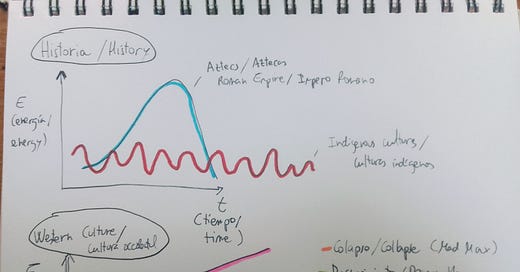 Historia / History
Aztecs / Aztecas
Roman Empire / Impero Romano
E
(energía/
energy)
Indigenas cultures /
culturas indígenas
t
(tiempo/
time)
Western Culture/
Cultura occidental
E
- Colapso / Collapse (Mad Max)